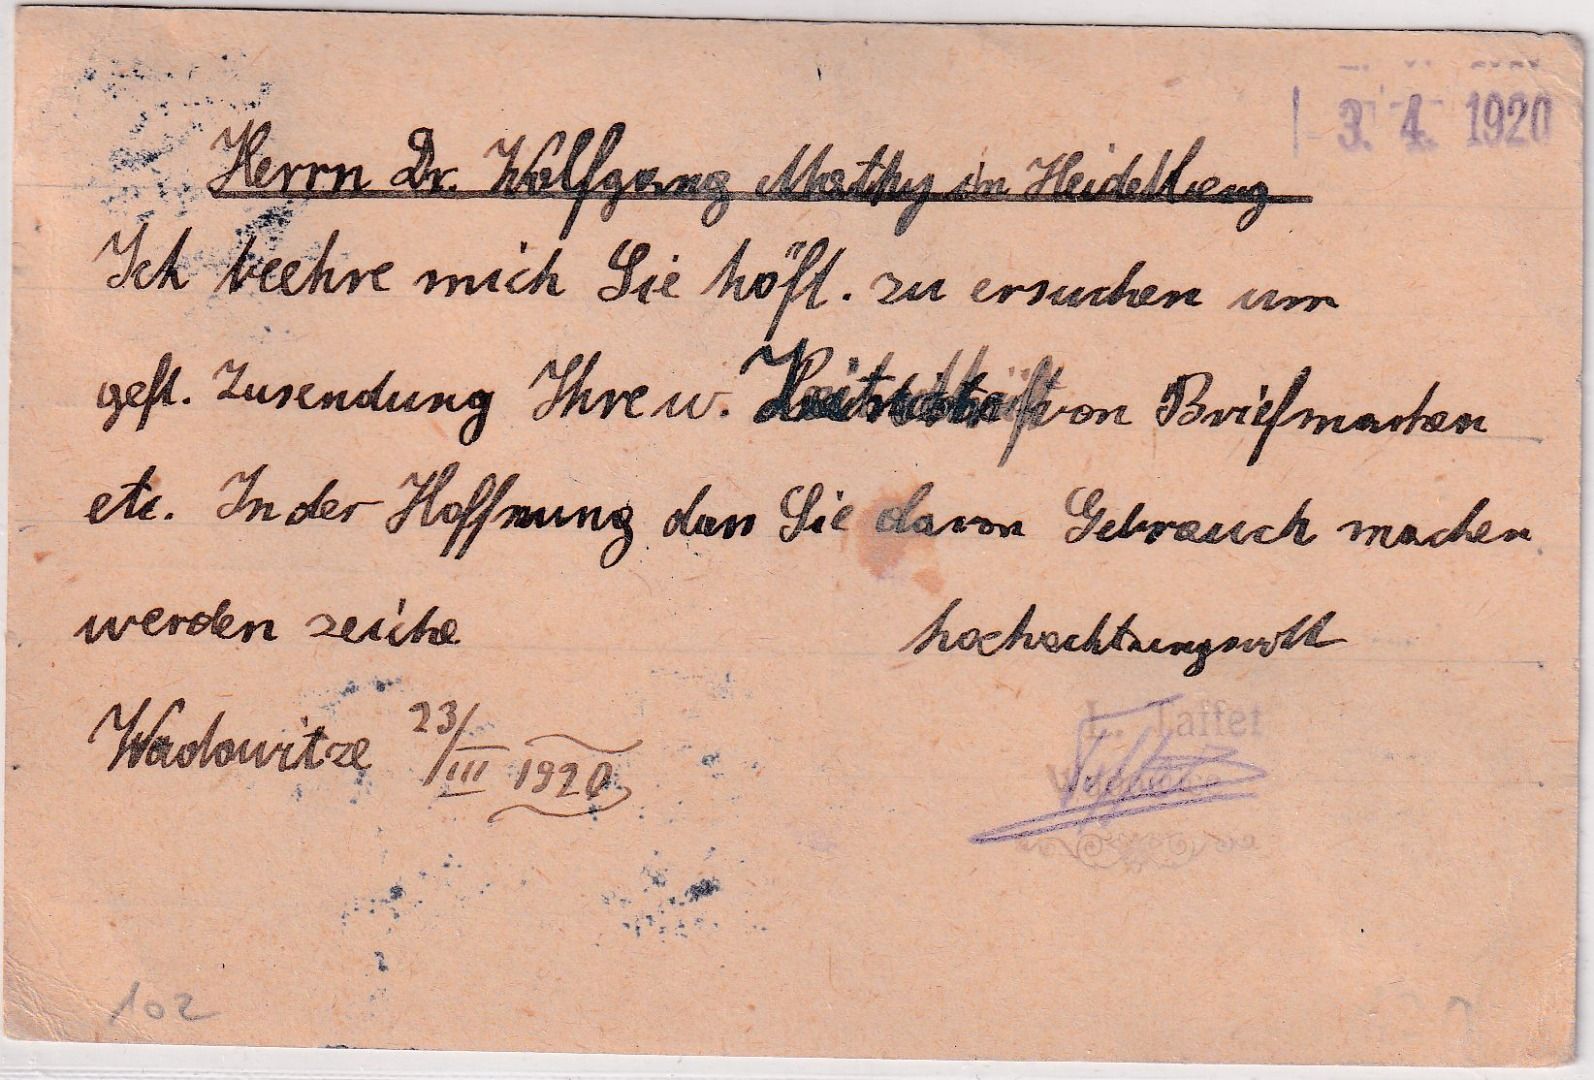 3. 4. 1920
Herrn Dr. Wolfgang Mathy in Heidelberg
Ich beehre mich Sie höfl. zu ersuchen um
gefl. Zusendung Ihre w. von Briefmarken
etc. In der Hoffnung dass Sie davon Gebrauch machen
werden zeiche
hochachtungsvoll
Wadowitze 23/III 1920
L. Taffet
102